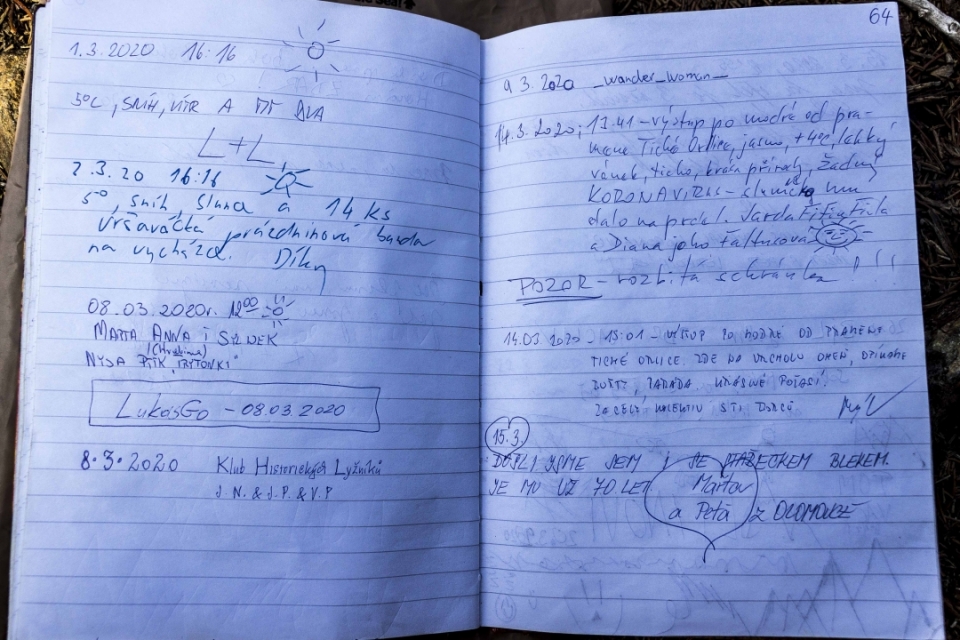 1.3.2020 16:16
5°C, SNÍH, VÍTR A DVA
L+L
2.3.20 16:16
5°, sníh, slunce a 14 ks
Vršavácká prázdninová banda
na vycházce. Díky
08.03.2020r. 12⁰⁰
MARTA ANNA I
NYSA PTTK TRYTONKI
LukasGo - 08.03 2020
8.3.2020 Klub Historických Lyžníků
J.N. & J.P. & V.P
64
9 3. 2020 _wander_woman_
14.3.2020; 13.41 - výstup po modré od pra-
mene Tiché Orlice, jasno, +4°C, lehký
vánek, ticho, krása přírody, žádný
KORONAVIRUS - sluníčko mu
dalo na prdel. Jarda
a Diana jeho
POZOR - rozbitá schránka!!!
14.03.2020 - 15:01 - VÝSTUP PO MODRÉ OD PRAMENE
TICHÉ ORLICE. ZDE NA VRCHOLU
PARÁDA. KRÁSNÉ POČASÍ.
ZA CELÝ
15.3.
DOŠLI JSME SEM I SE STAŘEČKEM BLEKEM.
JE MU UŽ 70 LET
a Petā z OLOMOUCE